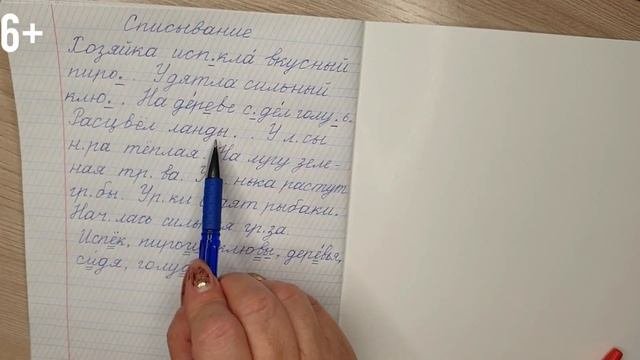 6+
Списывание
Хозяйка исп.кла́ вкусный
пиро. . У дятла сильный
клю. . На де́реве с.де́л голу.б.
Расцвёл ланды. . У л.сы
н.ра тёплая. На лугу зеле-
ная тр.ва. нька растут
гр.бы. Ур.ки рыбаки.
Нач.лась гр.за.
Испёк, клювы, дере́вья,
си́дя,